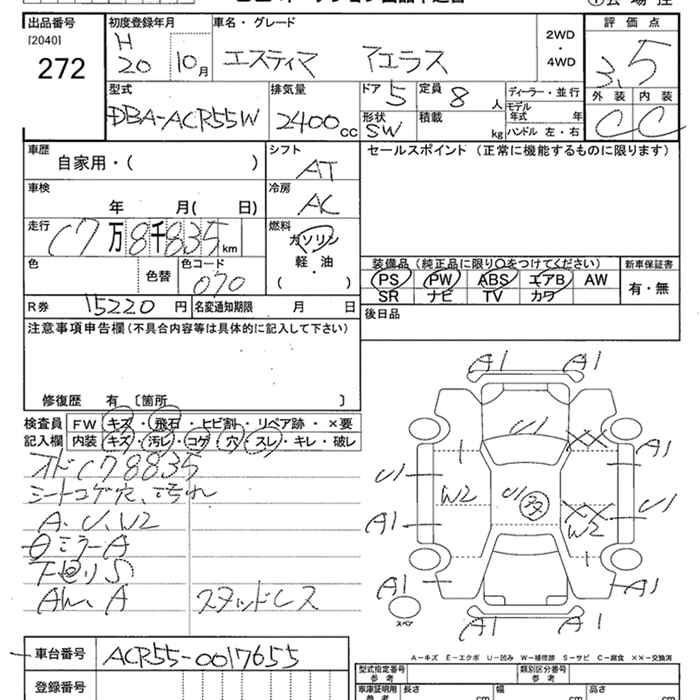 出品番号
[2040]
272
初度登録年月
H
20 10月
車名・グレード
エスティマ アエラス
2WD
・
4WD
評価点
3.5
外装 内装
C C
型式
DBA-ACR55W
排気量
2400cc
ドア 5
定員 8人
形状 SW
積載 kg
ディーラー・並行
モデル年式 年
ハンドル 左・右
車歴
自家用・( )
シフト
AT
セールスポイント (正常に機能するものに限ります)
車検
年 月( 日)
冷房
AC
走行
(7万8千835km
燃料
ガソリン
軽・油
( )
色
色替
色コード
070
装備品 (純正品に限り○をつけてください)
PS PW ABS エアB AW
SR ナビ TV カワ
新車保証書
有・無
R券 15220円
名変通知期限 月 日
後日品
注意事項申告欄(不具合内容等は具体的に記入して下さい)
修復歴 有 [箇所 ]
検査員
記入欄
FW キズ・飛石・ヒビ割・リペア跡・×要
内装 キズ・汚レ・コゲ・穴・スレ・キレ・破レ
オドC78835
シートコゲ穴、汚れ
A、U、W2
ミラーA
下廻りS
AW、A
スタッドレス
A1 A1
U1
U1
A1
W2
U1
多
XX
XX
W2
A1
U1
A1
A1
A1
A1
A1
スペア
A-キズ E-エクボ U-凹み W-補修跡 S-サビ C-腐食 XX-交換済
車台番号
ACR55-0017655
登録番号
型式指定番号
参考
類別区分番号
参考
車庫証明用
参考
長さ cm
幅 cm
高さ cm